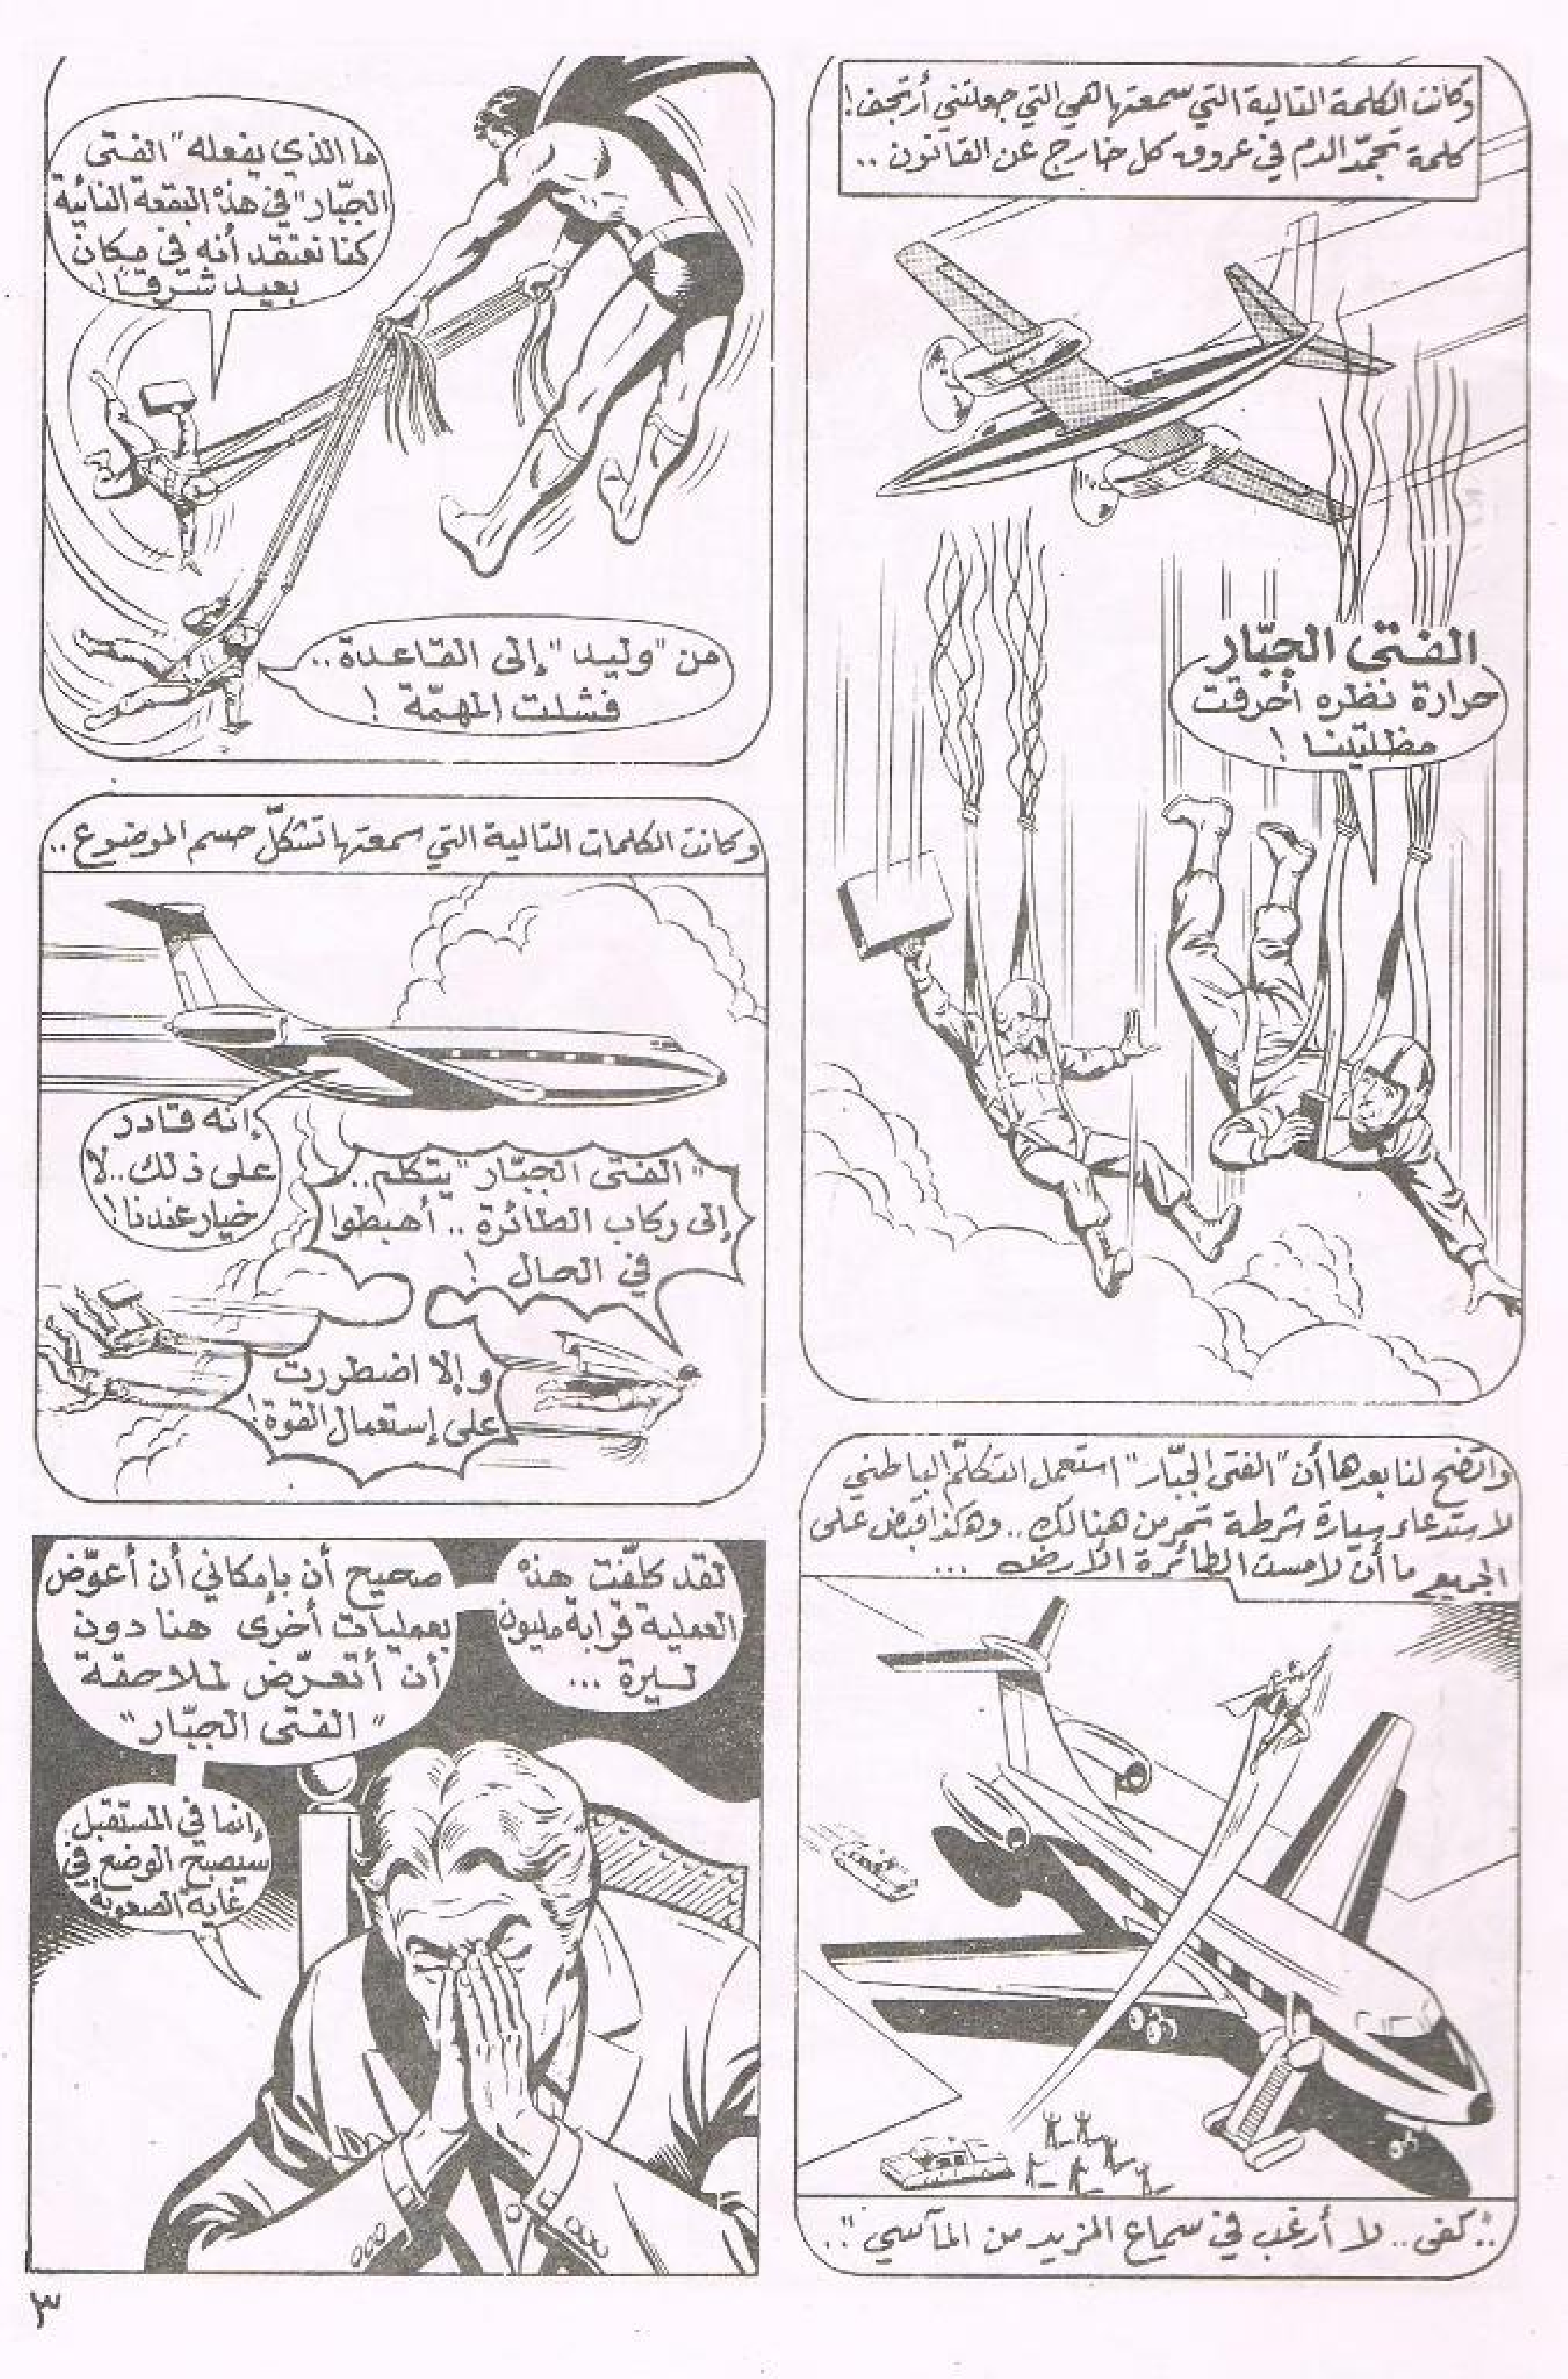 وكانت الكلمة التالية التي سمعتها هي التي جعلتني أرتجف!
كلمة تجمّد الدم في عروق كل خارج عن القانون ..
الفتى الجبّار
حرارة نظره أحرقت
مظليّتينا !
ما الذي يفعله "الفتى
الجبّار" في هذه البقعة النائية
كنا نعتقد أنه في مكان
بعيد شرقًا!
من "وليد" إلى القاعدة ..
فشلت المهمّة !
وكانت الكلمات التالية التي سمعتها تشكلّ حسم الموضوع ..
"الفتى الجبّار" يتكلم ..
إلى ركاب الطائرة .. أهبطوا
في الحال !
وإلا اضطررت
على إستعمال القوة!
إنه قادر
على ذلك .. لا
خيار عندنا!
واتضح لنا بعدها أن "الفتى الجبّار" استعمل التكلّم الباطني
لاستدعاء سيارة شرطة تمر من هنالك .. وهكذا قبض على
الجميع ما أن لامست الطائرة الأرض ...
".. كفى .. لا أرغب في سماع المزيد من المآسي" ..
لقد كلّفت هذه
العملية قرابة مليون
ليرة ...
صحيح أن بإمكاني أن أعوّض
بعمليات أخرى هنا دون
أن أتعرّض لملاحقة
"الفتى الجبّار"
إنما في المستقبل
سيصبح الوضع في
غاية الصعوبة
٣